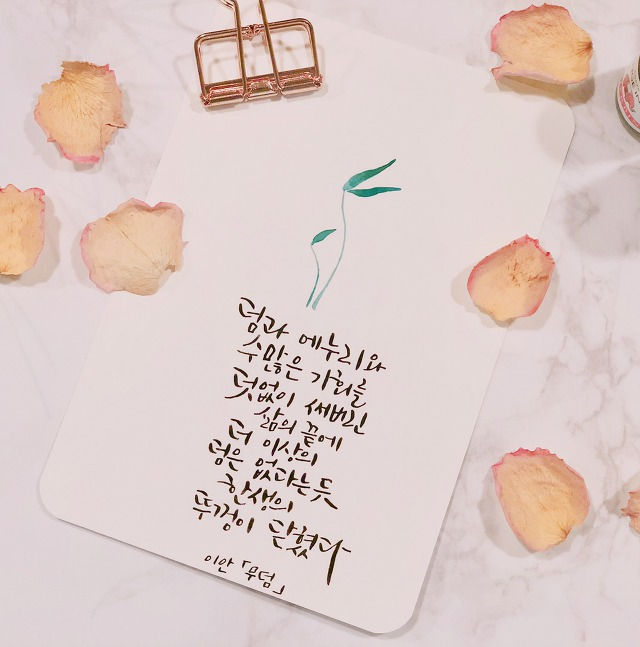 덤과 에누리와
수많은 기회를
덧없이 써버린
삶의 끝에
더 이상의
덤은 없다는 듯
한생의
뚜껑이 닫혔다
이안 「무덤」